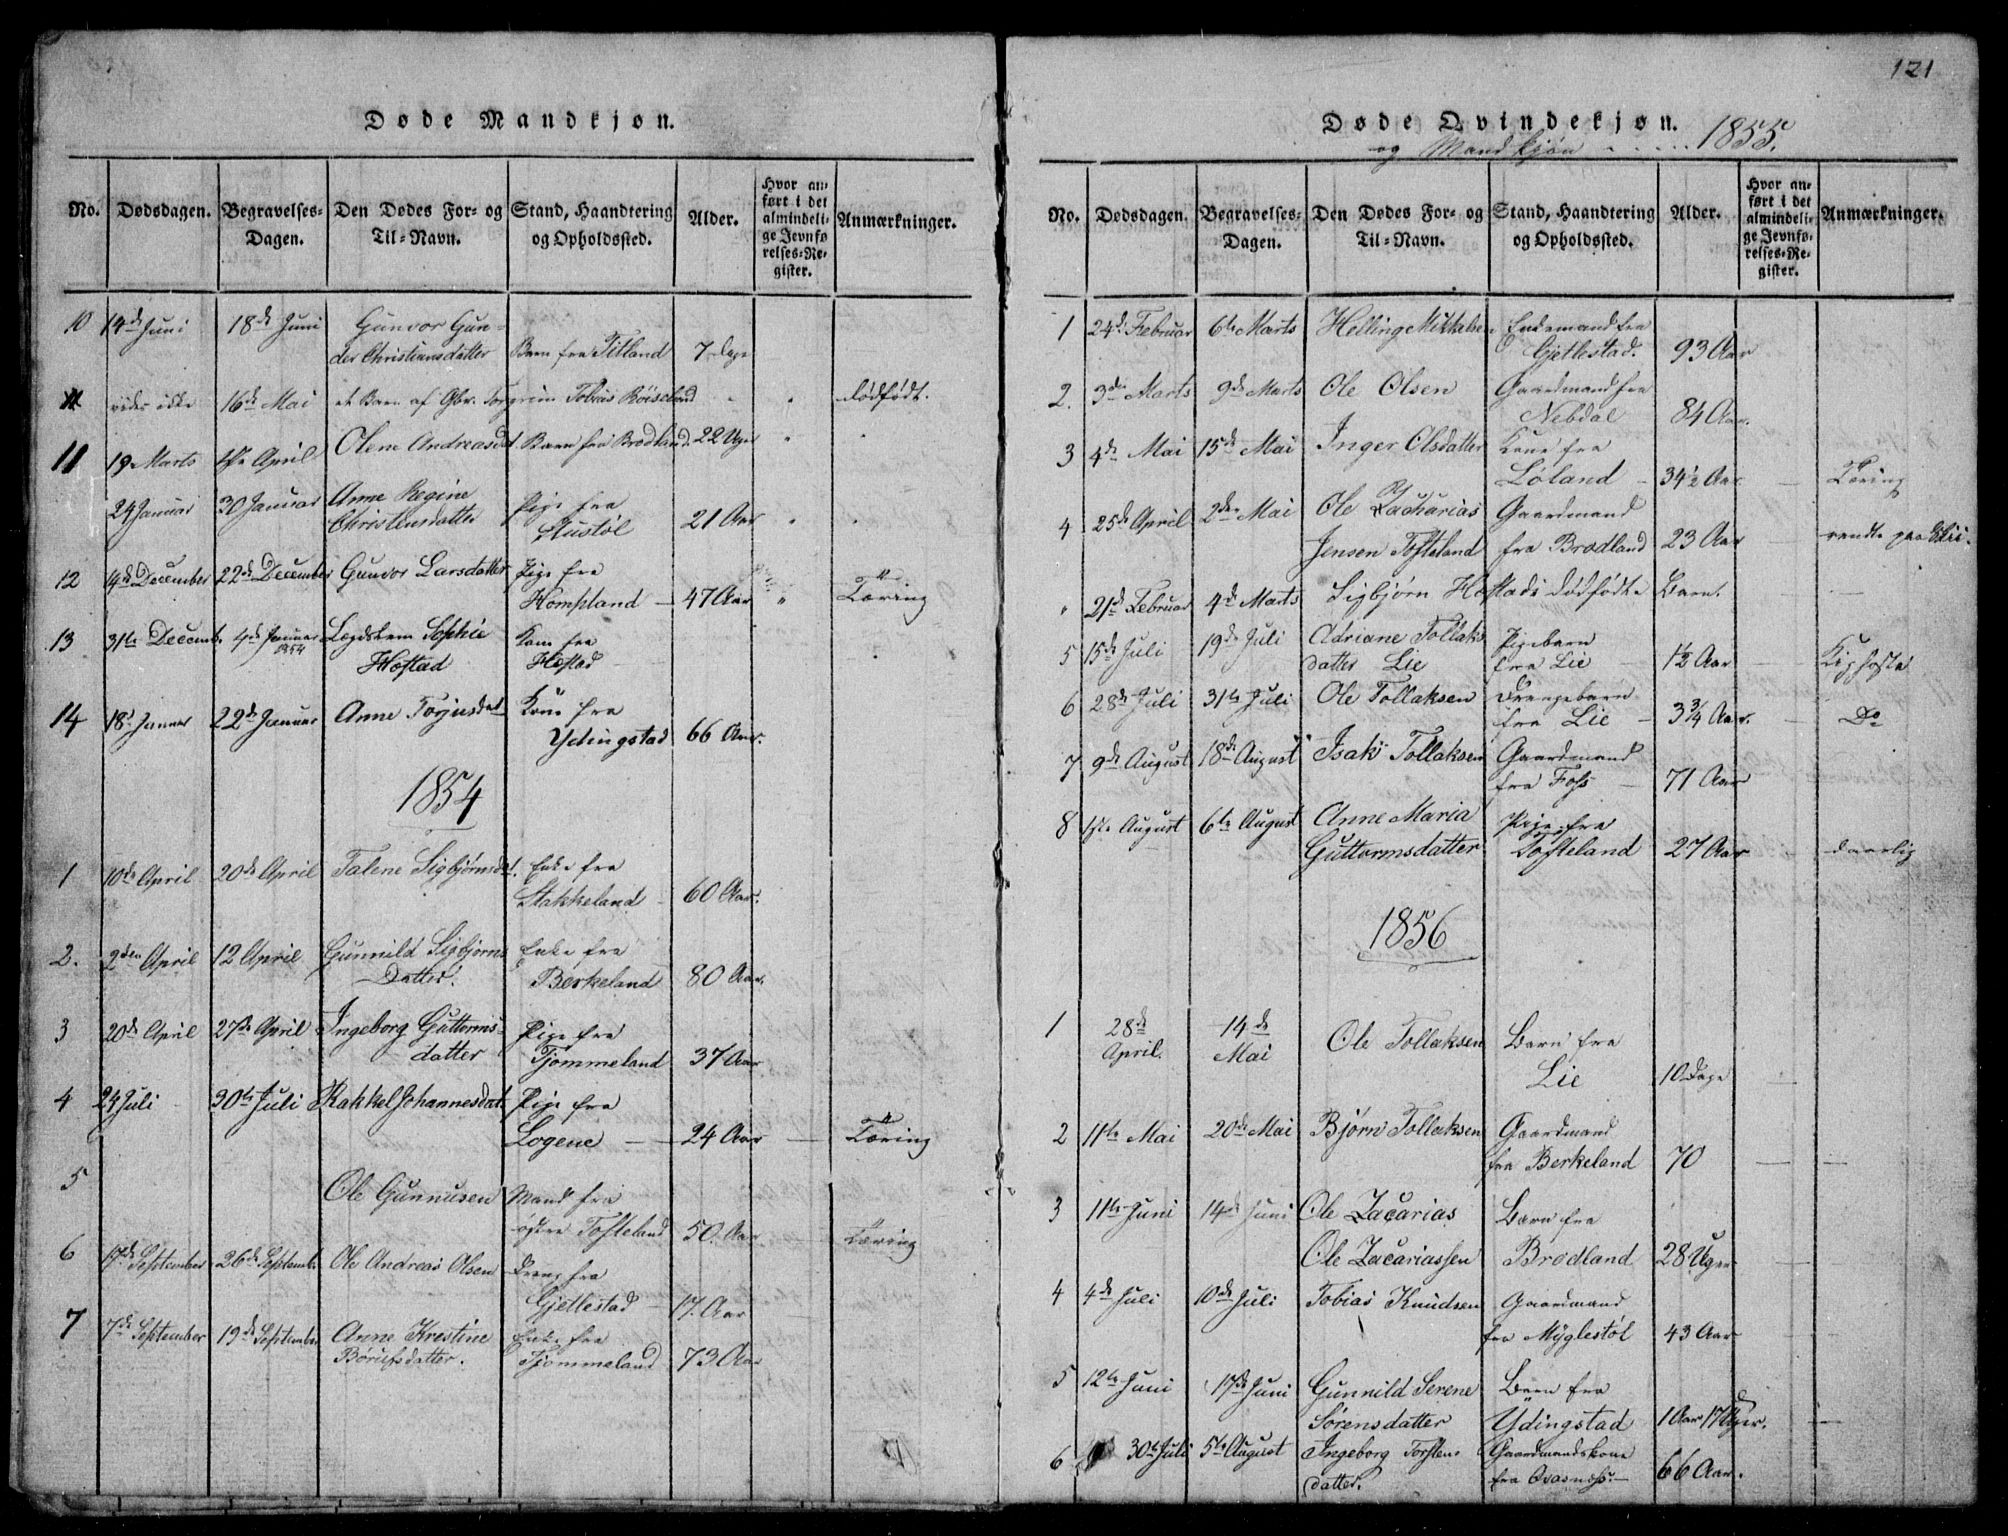 Døde Mandkjøn.
No. Dødsdagen. Begravelses-Dagen. Den Dødes For- og Til-Navn. Stand, Haandtering og Opholdssted. Alder. Hvor anført i det almindelige Jevnførelses-Register. Anmærkninger.
10 14de Juni 18de Juni Gunvor Gun-
der Christiansdatter Barn fra Titland 7 Dage
vides ikke 16de Mai et Barn af Gbr. Torgrim Tobias Røiseland " dødfødt.
11 19 Marts 1ste April Olene Andreasdat. Barn fra Brødland. 22 Uger "
24 Januar 30 Januar Anne Regine
Christensdatter Pige fra
Stustøl 21 Aar "
12 14de December 22de December Gunvor Larsdatter Pige fra
Hompland 47 Aar " Tæring
13 31te Decemb. 4de Januar 1854 Lægdslem Sophie
Høstad Kone fra
Høstad
14 18de Januar 22de Januar Anne Torjusdat Kone fra
Ydingstad 66 Aar.
1854
1 10de April 20de April Talene Sigbjørnsdat. Enke fra
Stakkeland 60 Aar.
2. 2den April 12 April Gunnild Sigbjørns
Datter. Enke fra
Berkeland 80 Aar.
3 20de April 27de April Ingeborg Guttorms-
datter Pige fra
Tjømmeland 37 Aar
4 24 Juli 30te Juli Rakkel Johannesdat. Pige fra
Logene 24 Aar Tæring
5 Ole Gunnusen Mand fra
østre Tofteland 50. Aar Tæring
6 17de September 26de Septemb. Ole Andreas Olsen Dreng fra
Gjetlestad 17. Aar
7 7de September 19de September Anne Kristine
Børufsdatter. Enke fra
Tjømmeland 73 Aar
121
Døde Qvindekjøn.
og Mandkjøn ..... 1855.
No. Dødsdagen. Begravelses-Dagen. Den Dødes For- og Til-Navn. Stand, Haandtering og Opholdssted. Alder. Hvor anført i det almindelige Jevnførelses-Register. Anmærkninger.
1 24de Februar 6te Marts Helling Mikkelsen Enkemand fra
Gjetlestad. 93 Aar
2. 3die Marts 9de Marts Ole Olsen Gaardmand fra
Nebdal 84 Aar.
3 4de Mai 15de Mai Inger Olsdatter Kone fra
Løland 34½ Aar Tæring
4 25de April 2den Mai Ole Zacharias
Jensen Tofteland Gaardmand
fra Brødland 23 Aar
" 21de Februar 4de Marts Sigbjørn Høstads dødfødte Barn.
5 15de Juli 19de Juli Adriane Tollaks
datter Lie Pigebarn
fra Lie 1½ Aar Kighoste
6 28de Juli 31te Juli Ole Tollaksen Drengebarn
fra Lie 3¾ Aar. Do
7 9de August 18de August Isak Tollaksen Gaardmand
fra Foss 71 Aar
8 1ste August 6te August Anne Maria
Guttormsdatter Pige fra
Tofteland 27 Aar daarlig
1856
1 28de
April. 14de
Mai Ole Tollaksen Barn fra
Lie 10 Dage
2 11te Mai 20de Mai Bjørn Tollaksen Gaardmand
fra Berkeland 70
3 11te Juni 14de Juni Ole Zacarias
Ole Zacariassen Barn fra
Brødland 28 Uger
4 4de Juli 10de Juli Tobias Knudsen Gaardmand
fra Myglestøl 43 Aar
5 12te Juni 17de Juni Gunnild Serene
Sørensdatter Barn fra
Ydingstad 1 Aar 17 Uger.
6 30te Juli 5te August Ingeborg Torstens
datter. Gaardmandskone
fra 66 Aar.